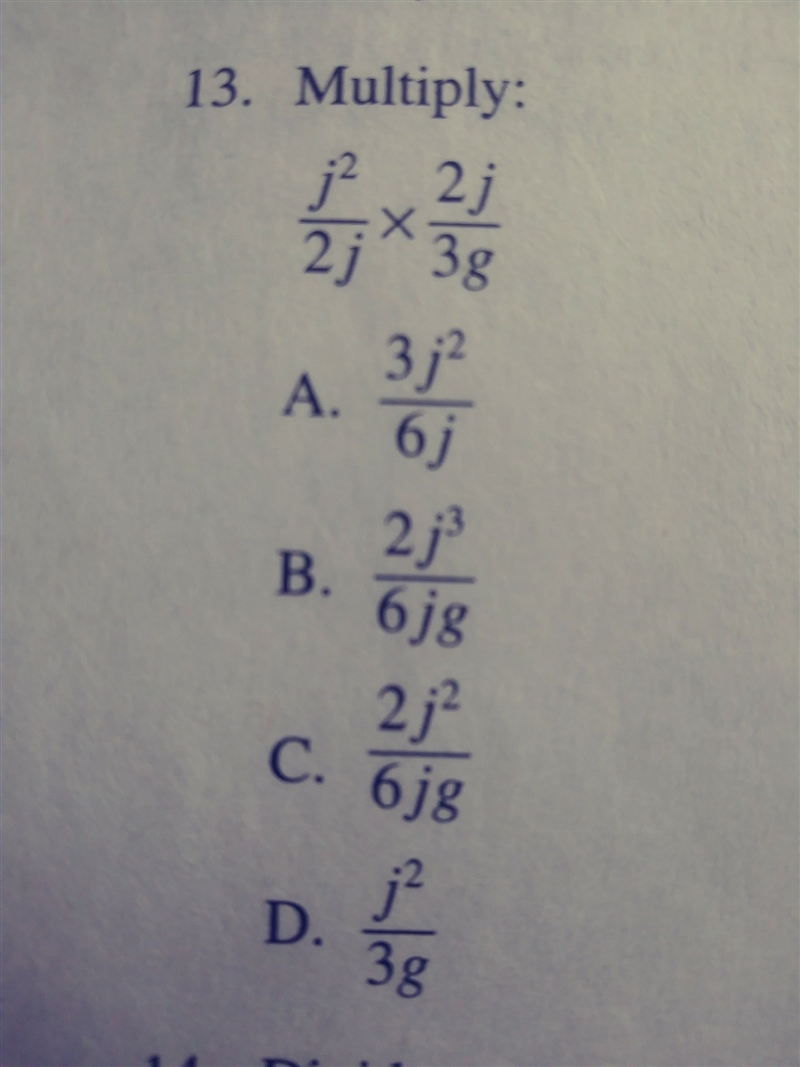 13. Multiply:
j²/2j × 2j/3g
A. 3j²/6j
B. 2j³/6jg
C. 2j²/6jg
D. j²/3g